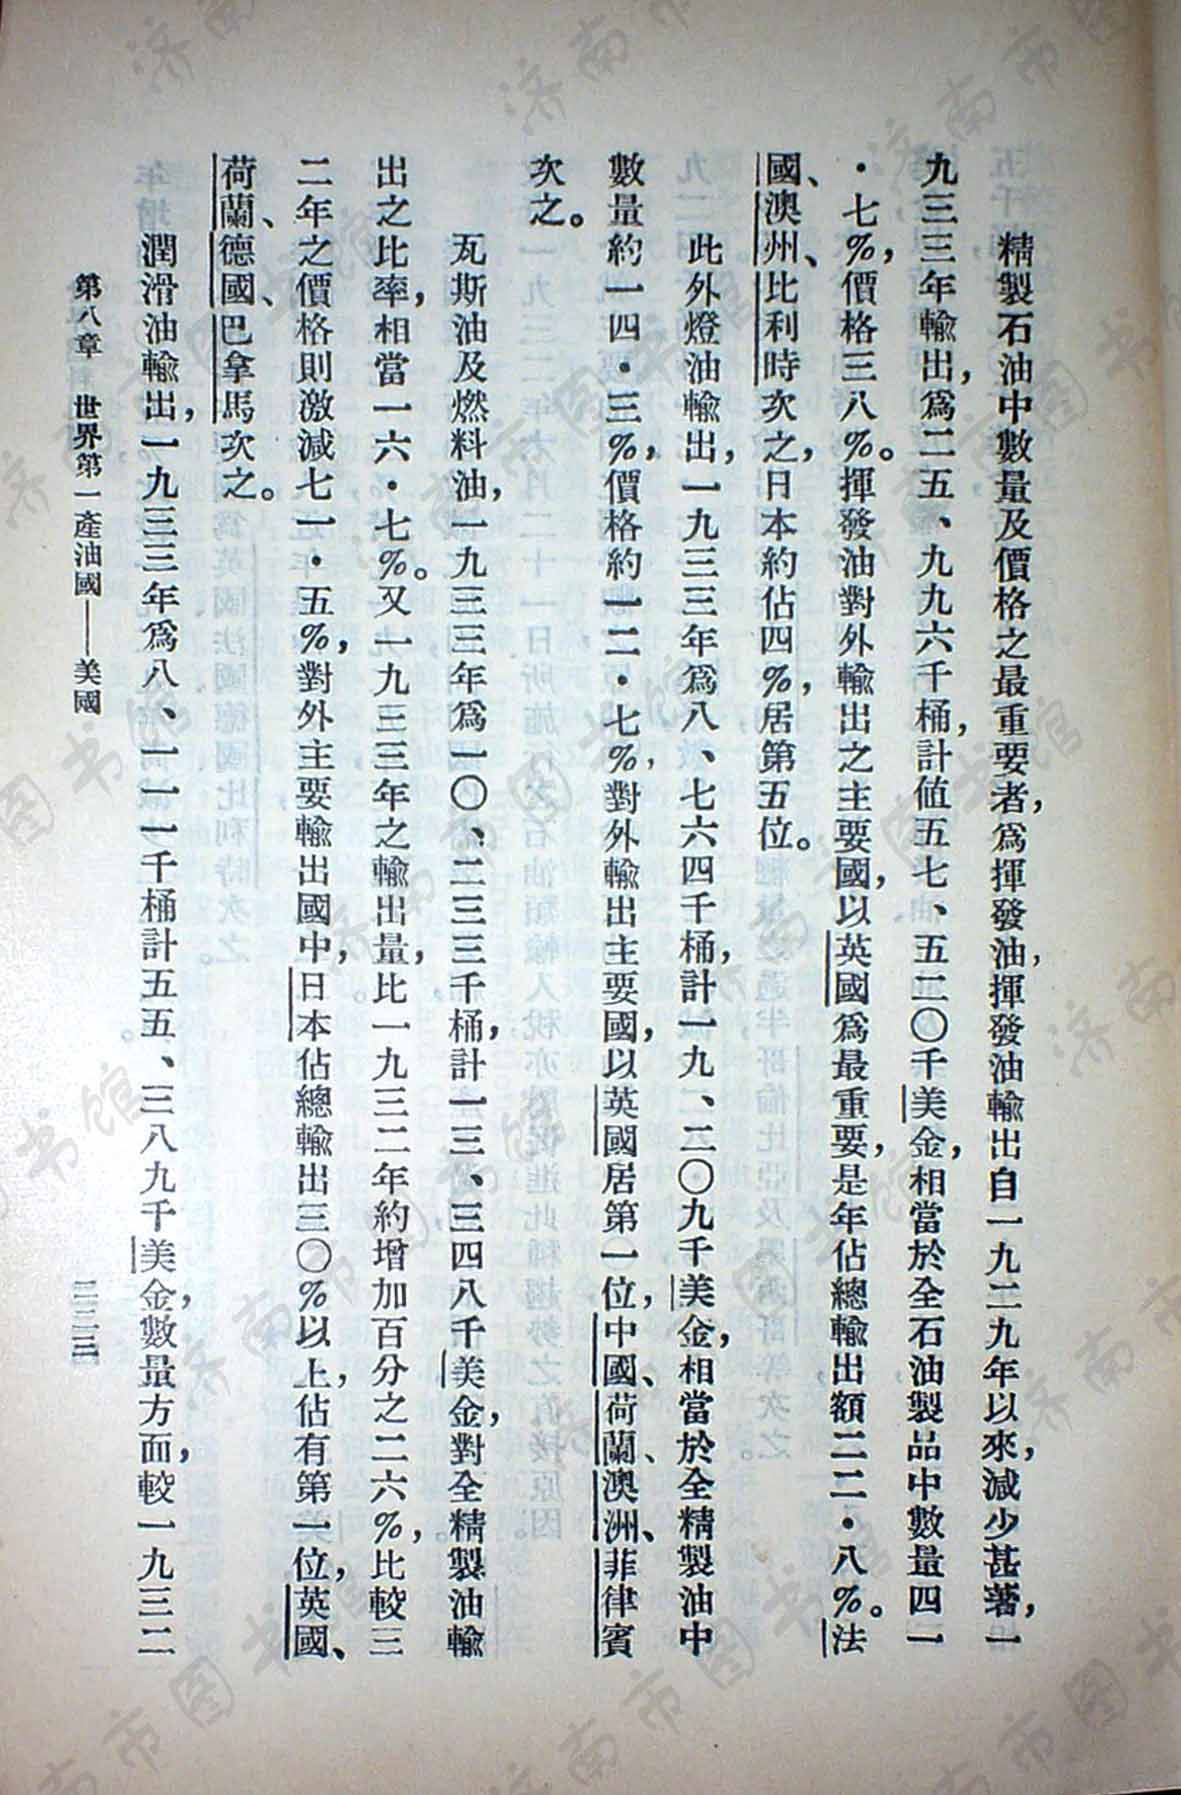 精製石油中數量及價格之最重要者，爲揮發油，揮發油輸出自一九二九年以來，減少甚著，一
九三三年輸出，爲二五、九九六千桶，計値五七、五二〇千美金，相當於全石油製品中數量四一
・七％，價格三八％。揮發油對外輸出之主要國，以英國爲最重要，是年佔總輸出額二二・八％。法
國、澳州、比利時次之，日本約佔四％，居第五位。
此外燈油輸出，一九三三年爲八、七六四千桶，計一九、二〇九千美金，相當於全精製油中
數量約一四・三％，價格約一二・七％，對外輸出主要國，以英國居第一位，中國、荷蘭、澳洲、菲律賓
次之。
瓦斯油及燃料油，一九三三年爲一〇、二三三千桶，計一三、三四八千美金，對全精製油輸
出之比率，相當一六・七％。又一九三三年之輸出量，比一九三二年約增加百分之二六％，比較三
二年之價格則激減七一・五％，對外主要輸出國中，日本佔總輸出三〇％以上，佔有第一位，英國、
荷蘭、德國、巴拿馬次之。
潤滑油輸出，一九三三年爲八、一一一千桶計五五、三八九千美金，數量方面，較一九三二
第八章 世界第一產油國——美國
二二三